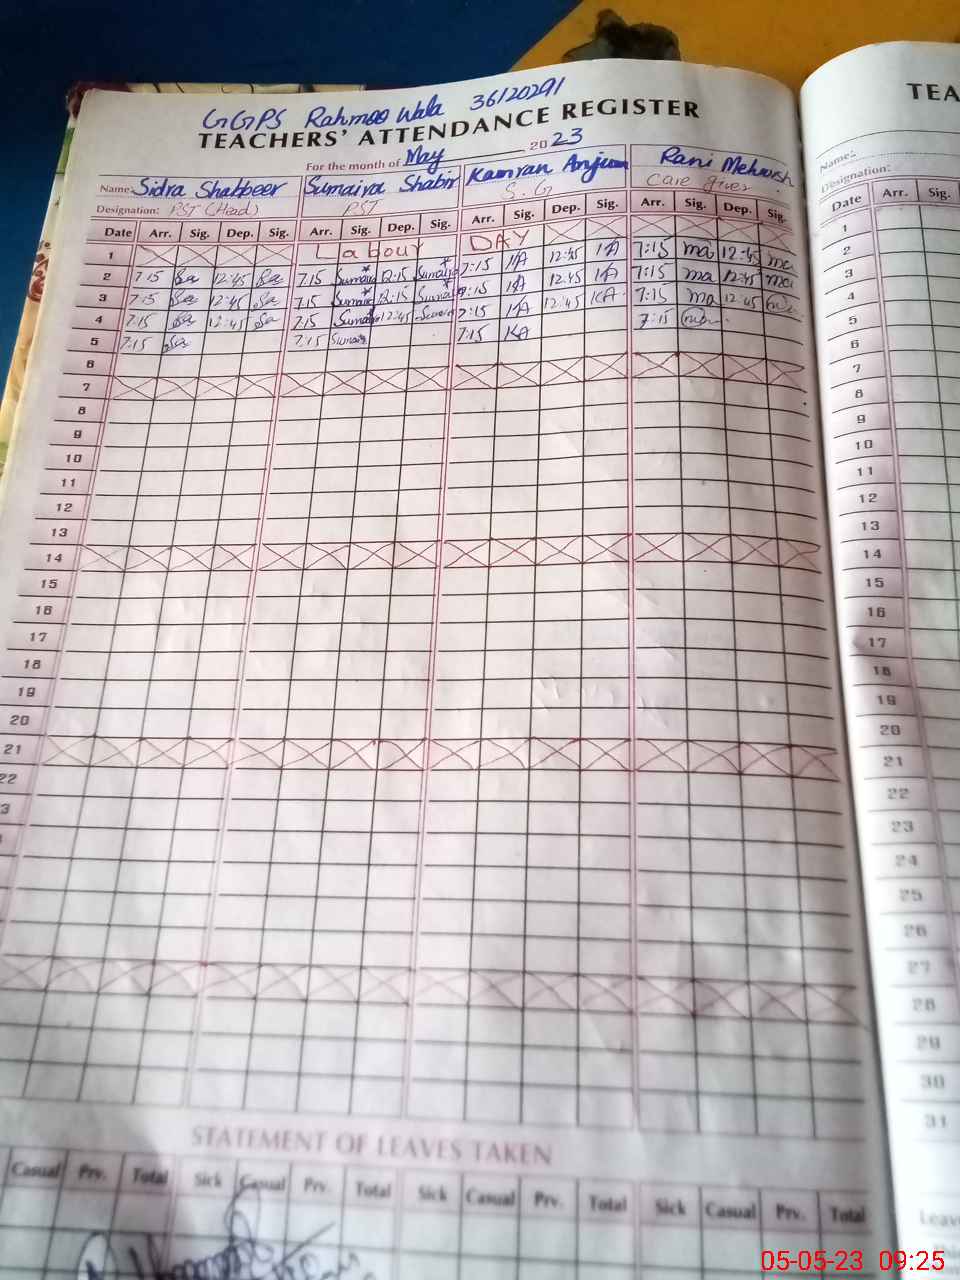 GGPS Rahmoo Wala 36120291
TEACHERS' ATTENDANCE REGISTER
For the month of May 2023
Name: Sidra Shabbeer Sumaira Shabir Kamran Anjum Rani Mehwish
Designation: PST (Head) PST S.G Care giver
Date Arr. Sig. Dep. Sig. Arr. Sig. Dep. Sig. Arr. Sig. Dep. Sig. Arr. Sig. Dep. Sig.
1 Labour DAY
2 7:15 Sa 12:45 Sa 7:15 Sumaira 12:15 Sumaira 7:15 KA 12:45 KA 7:15 ma 12:45 ma
3 7:15 Sa 12:45 Sa 7:15 Sumaira 12:15 Sumaira 7:15 KA 12:45 KA 7:15 ma 12:45 ma
4 7:15 Sa 12:45 Sa 7:15 Sumaira 12:45 Sumaira 7:15 KA 12:45 KA 7:15 ma 12:45
5 7:15 Sa 7:15 Sumaira 7:15 KA 7:15
6
7
8
9
10
11
12
13
14
15
16
17
18
19
20
21
22
3
STATEMENT OF LEAVES TAKEN
Casual Prv. Total Sick Casual Prv. Total Sick Casual Prv. Total Sick Casual Prv. Total
TEA
Name:
Designation:
Date Arr. Sig.
1
2
3
4
5
6
7
8
9
10
11
12
13
14
15
16
17
18
19
20
21
22
23
24
25
26
27
28
29
30
31
Leave
05-05-23 09:25